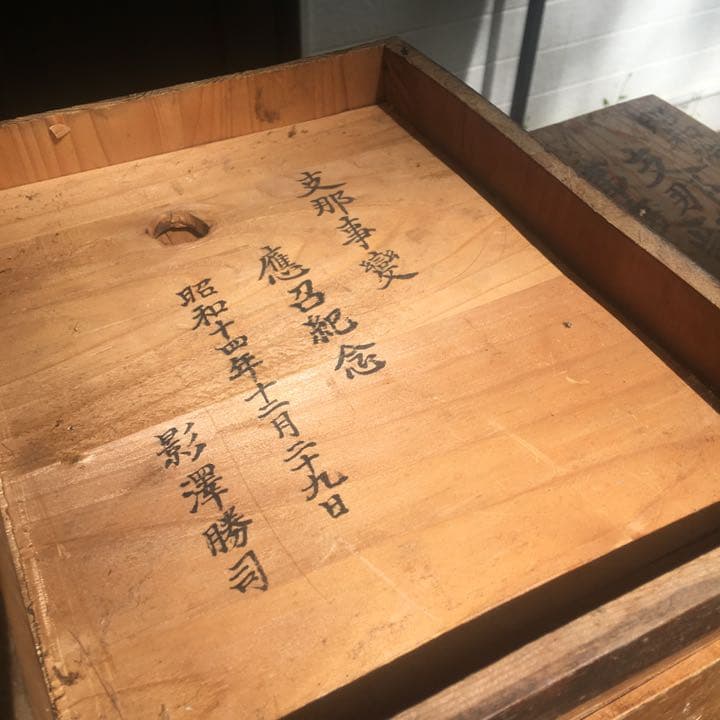 支那事變
應召紀念
昭和十四年十二月二十九日
影澤勝司
支那